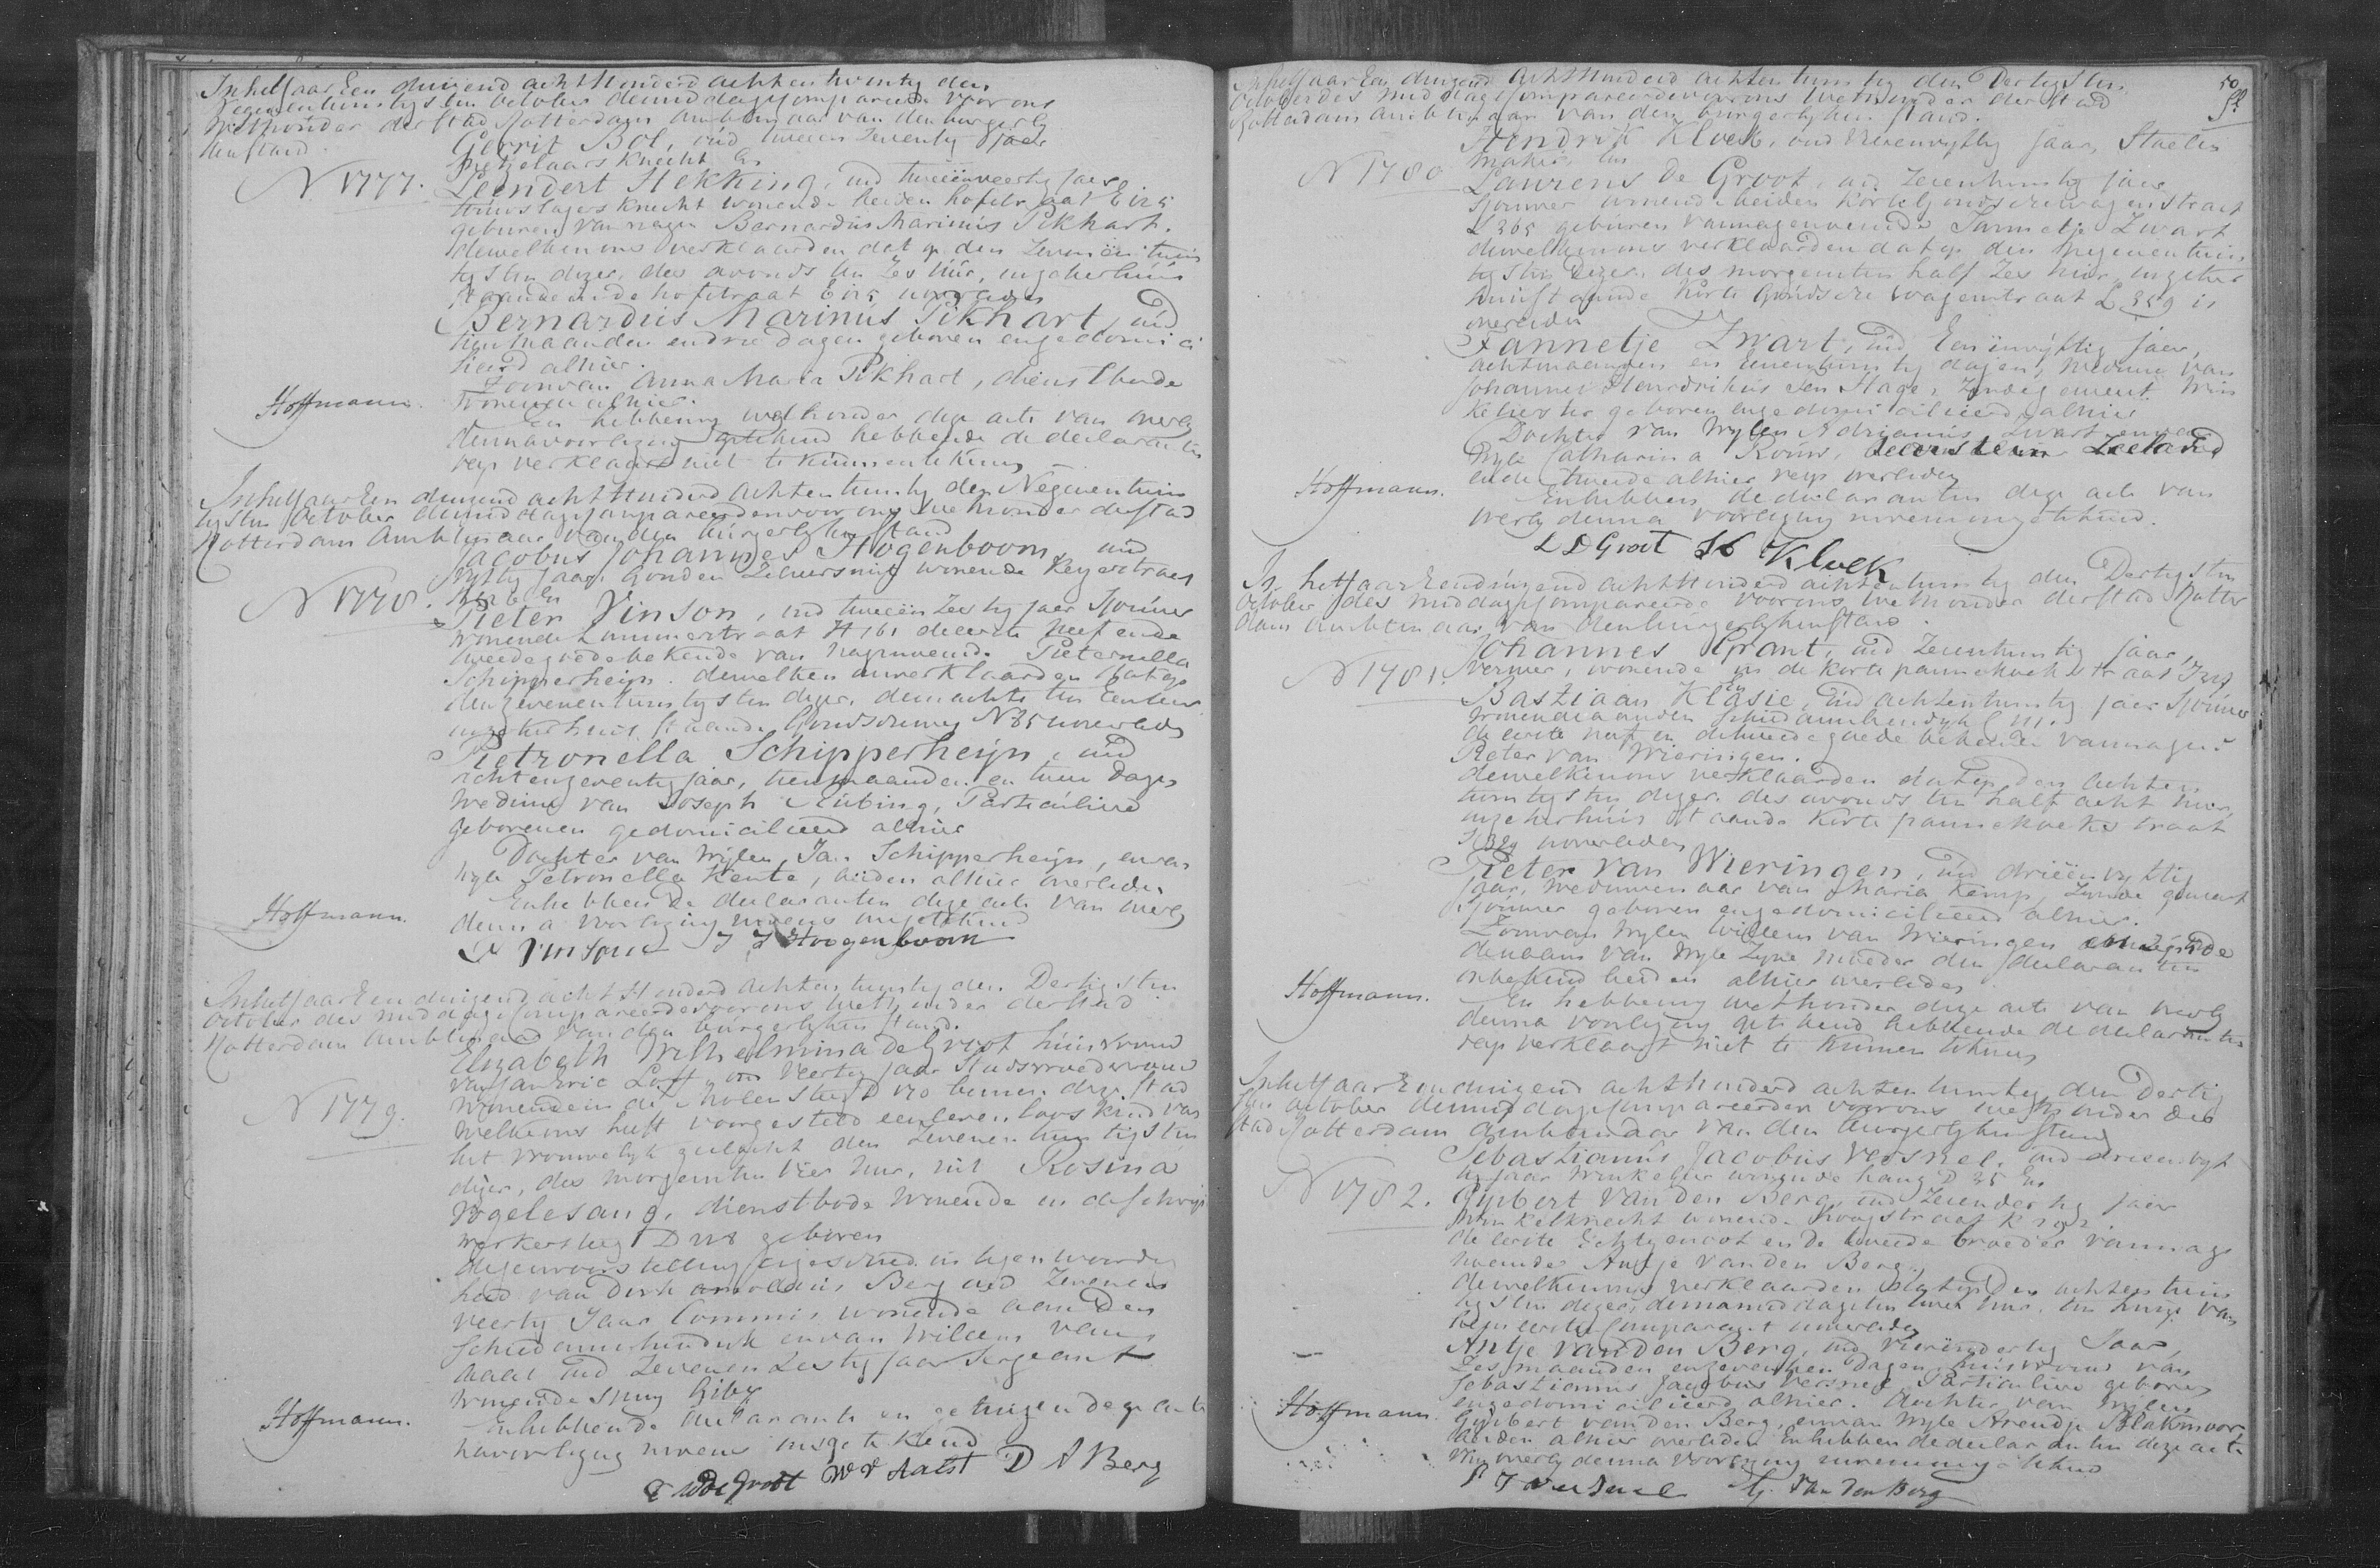 In het Jaar Een duizend acht Honderd achten twintig den
Negenentwintigsten October des middags Compareerde voor ons
Wethouder der stad Rotterdam Ambtenaar van den burgerly
ken stand.
Gerrit Bol, oud tweeen Zeventig Jaar
Metzelaars knecht En
N 1777.
Leendert Hekking, oud tweeënveertig Jaar
knecht wonende beiden hofstraat E 125
geburen van nagen Bernardus Marinus Pikhart.
dewelken ons verklaarden dat op den Zevenentwin
tigsten dezer, des avonds ten Zes uur, in zeker huis
staande in de hofstraat E 125 is overleden
Bernardus Marinus Pikhart, oud
tien maanden en drie dagen geboren en gedomici
lieerd alhier.
Zoon van Anna Maria Pikhart, dienstbode
wonende alhier.
Hoffmann.
En hebben wij wethouder deze acte van overly
den na voorlezing getekend hebbende de declaranten
verklaard niet te kunnen tekenen
In het Jaar Een duizend acht Honderd achtentwintig den Negenentwin
tigsten October des middags Compareerden voor ons Wethouder der stad
Rotterdam Ambtenaar van den burgerlyken stand
Jacobus Johannes Hogenboom, oud
vyftig Jaar, Gouden Zilversmit wonende Keyzerstraat
En
N 1778.
Pieter Vinson, oud tweeën Zestig Jaar Sjouwer
wonende Lammerstraat H 161 de eerste neef en de
tweede goede bekende van nagenoemde Pieternella
Schipperheijn. dewelken ons verklaarden dat op
den zevenentwintigsten dezer, des nachts ten Een uur
in zeker huis staande Goudsche weg N 85 is overleden
Pietronella Schipperheijn, oud
achtenzeventig Jaar, tien maanden en twee dagen
Weduwe van Joseph Rubing, Particuliere
geboren en gedomicilieerd alhier
Dochter van Wylen Jan Schipperheijn, en van
Wyle Petronella Kente, beiden alhier overleden
En hebben de declaranten deze acte van overly
den na voorlezing nevens ons getekend
Hoffmann.
P Vinson J J Hoogenboom
In het Jaar Een duizend acht Honderd achtentwintig den Dertigsten
October des middags Compareerde voor ons Wethouder der stad
Rotterdam Ambtenaar van den burgerlyken stand.
Elizabeth Wilhelmina de Groot huisvrouw
van Jan Eric Loff, oud Veertig Jaar Stadsvroedvrouw
wonende in de Molensteeg D 170 binnen deze stad
N 1779.
Welke ons heeft voorgesteld een levenloos kind van
het vrouwelyk geslacht den Zevenentwintigsten
dezer, des morgens ten Vier uur, uit Rosina
Vogelesang, dienstbode wonende in de Schrijn
werkersteeg D 228 geboren
deze voorstelling in tegenwoordig
heid van Dirk Arnoldus Berg oud Zevenen
veertig Jaar Commis, wonende aan den
Schiedamschendyk en van Willem van
Aalst oud Zevenen Zestig Jaar Sergeant
wonende
En hebben de declarante en getuigen deze acte
na voorlezing nevens ons getekend
Hoffmann.
E W de Groot W V Aalst D A Berg
50
In het Jaar Een duizend Acht Honderd achtentwintig den Dertigsten
October des middags Compareerden voor ons Wethouder der stad
Rotterdam Ambtenaar van den burgerlyken stand.
Hendrik Kloek, oud Jaar, Stoelen
maker, En
N 1780
Laurens De Groot, oud Zevenentwintig Jaar
Sjouwer wonende beiden Korte Goudsche wagenstraat
L 365 geburen van nagenoemde Jannetje Zwart
dewelken ons verklaarden dat op den Negenentwin
tigsten dezer, des morgens ten half Zes uur, in zeker
huis staande Korte Goudsche wagenstraat L 359 is
overleden
Jannetje Zwart, oud Eenënvyftig Jaar,
acht maanden en Eenentwintig dagen, Weduwe van
Johannes Hendrikus den Hage, Winkelierster geboren en gedomicilieerd alhier
Dochter van Wylen Adrianus Zwart en van
Wyle Catharina Kouw, de eerste in Zeeland
en de tweede alhier overleden
Hoffmann.
En hebben de declaranten deze acte van
overlyden na voorlezing nevens ons getekend.
L D Groot H Kloek
In het Jaar Een duizend acht Honderd achtentwintig den Dertigsten
October des middags Compareerden voor ons Wethouder der stad Rotter
dam Ambtenaar van den burgerlyken stand.
Johannes Grant, oud Zevenentwintig Jaar,
N 1781.
Verwer, wonende in de Korte pannekoekstraat I 329
en
Bastiaan Klasie, oud achtentwintig Jaar Sjouwer
wonende aan den Schiedamschendyk
de eerste neef en de tweede goede bekende van nagen.
Pieter van Wieringen.
dewelken ons verklaarden dat op den Achten
twintigsten dezer, des avonds ten half acht uur,
in zeker huis staande Korte pannekoekstraat
I 329 is overleden
Pieter van Wieringen, oud drieënvyftig
Jaar, Weduwenaar van Maria Kemp,
Sjouwer geboren en gedomicilieerd alhier.
Zoon van Wylen Willem van Wieringen en zijnde
de naam van Wyle Zyne moeder den declaranten
onbekend beiden alhier overleden
Hoffmann.
En hebben wij Wethouder deze acte van overly
den na voorlezing getekend hebbende de declaranten
verklaard niet te kunnen tekenen
In het Jaar Een duizend acht honderd achtentwintig den Dertig
sten October des middags Compareerden voor ons Wethouder der
stad Rotterdam Ambtenaar van den burgerlyken stand
Sebastianus Jacobus Versnel, oud drieenvyf
tig Jaar Winkelier wonende hang D 35 En
N 1782.
Gysbert van den Berg, oud Jaar
Winkelknecht wonende Hoogstraat K
de eerste Echtgenoot en de tweede broeder van nage
noemde Antje van den Berg.
dewelken ons verklaarden dat op den achtentwin
tigsten dezer, des namiddags ten twee uur, ten huize van
den eerste Comparant is overleden
Antje van den Berg, oud Vierëndertig Jaar,
Zes maanden en zeventien dagen, huisvrouw van
Sebastianus Jacobus Versnel, Particuliere geboren
en gedomicilieerd alhier. dochter van Wylen
Hoffmann.
Gysbert van den Berg, en van Wyle Arendje
beiden alhier overleden En hebben de declaranten deze acte
van overlyden na voorlezing nevens ons getekend
S J Versnel G. Van Den Berg